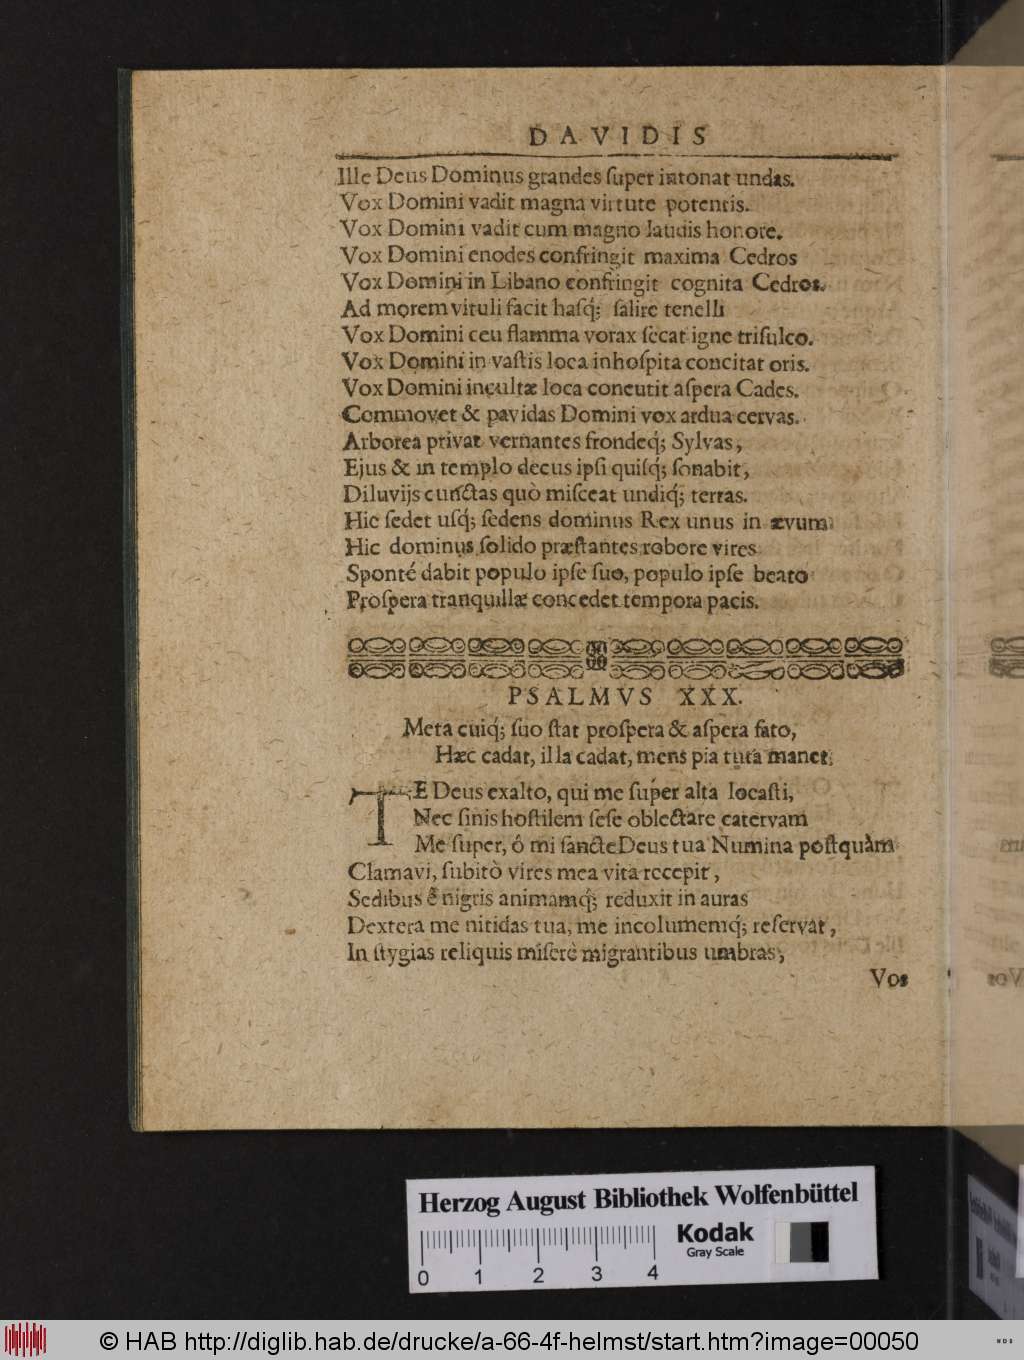 DAVIDIS
Ille Deus Dominus grandes ſuper intonat undas.
Vox Domini vadit magna virtute potentis.
Vox Domini vadit cum magno laudis honore.
Vox Domini enodes confringit maxima Cedros
Vox Domini in Libano confringit cognita Cedros.
Ad morem vituli facit haſq́; ſalire tenelli
Vox Domini ceu flamma vorax ſecat igne triſulco.
Vox Domini in vaſtis loca inhoſpita concitat oris.
Vox Domini incultæ loca concutit aſpera Cades.
Commovet & pavidas Domini vox ardua cervas.
Arborea privat vernantes frondeq́; Sylvas,
Ejus & in templo decus ipſi quiſq́; ſonabit,
Diluvijs cunctas quò miſceat undiq́; terras.
Hic ſedet uſq́; ſedens dominus Rex unus in ævum
Hic dominus ſolido præſtantes robore vires
Sponté dabit populo ipſe ſuo, populo ipſe beato
Proſpera tranquillæ concedet tempora pacis.
PSALMVS XXX.
Meta cuiq́; ſuo ſtat proſpera & aſpera fato,
Hæc cadat, illa cadat, mens pia tuta manet.
TE Deus exalto, qui me ſuper alta locaſti,
Nec ſinis hoſtilem ſeſe oblectare catervam
Me ſuper, ô mi ſancte Deus tua Numina poſtquàm
Clamavi, ſubitò vires mea vita recepit,
Sedibus è nigris animamq́; reduxit in auras
Dextera me nitidas tua, me incolumemq́; reſervat,
In ſtygias reliquis miſerè migrantibus umbras,
Vos
Herzog August Bibliothek Wolfenbüttel
0 1 2 3 4
Kodak
Gray Scale
© HAB http://diglib.hab.de/drucke/a-66-4f-helmst/start.htm?image=00050